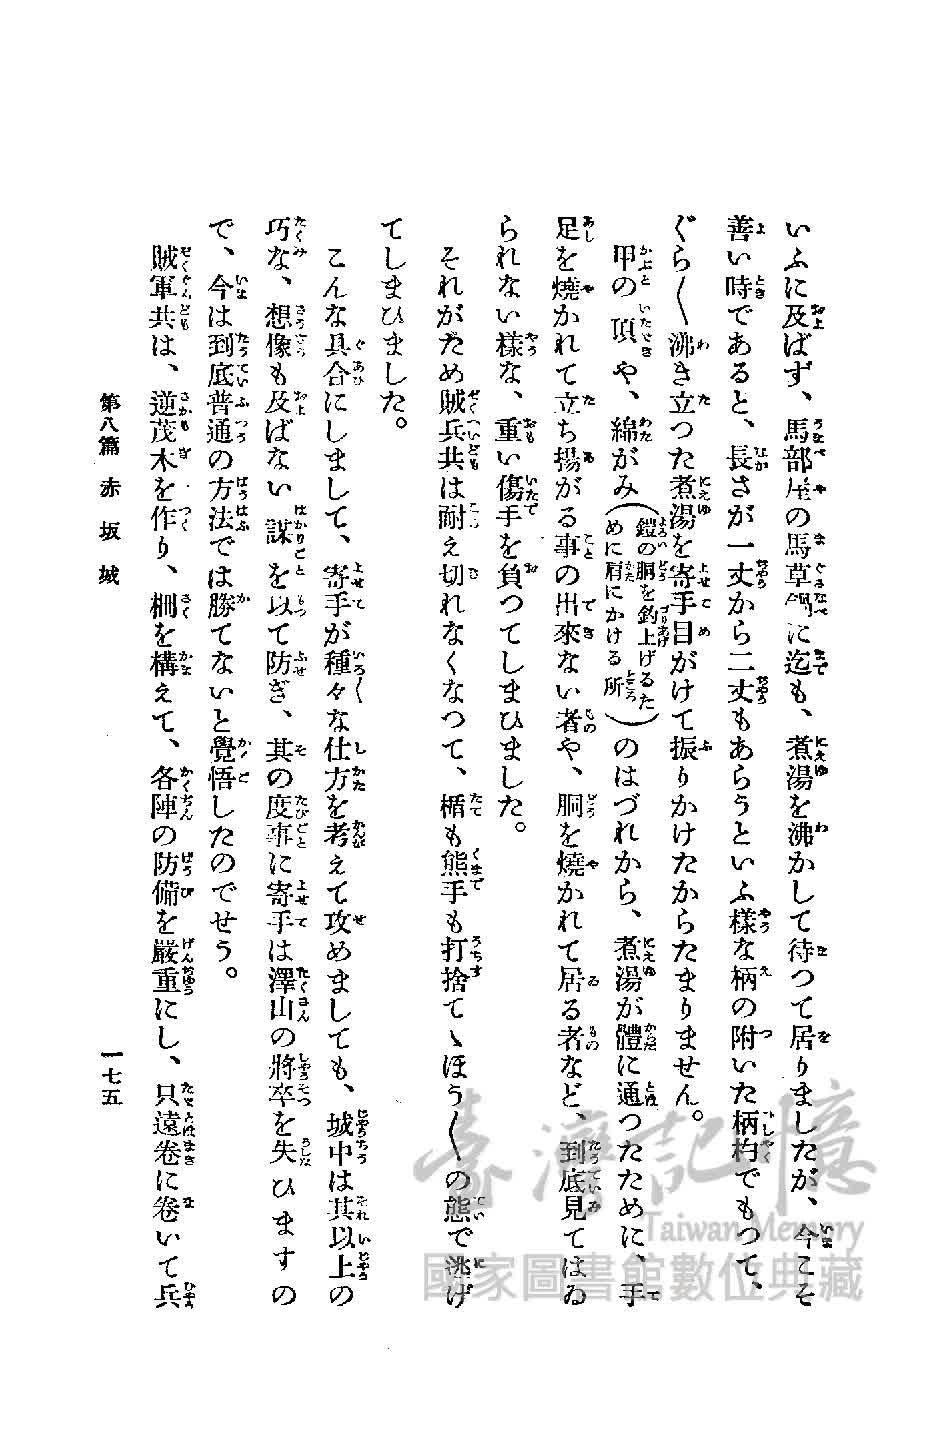 いふに及ばず、馬部屋の馬草鍋に迄も、煮湯を沸かして待つて居りましたが、今こそ
善い時であると、長さが一丈から二丈もあらうといふ樣な柄の附いた柄杓でもつて、
ぐら〱沸き立つた煮湯を寄手目がけて振りかけたからたまりません。
甲の頂や、綿がみ(鎧の胴を釣上げるために肩にかける所)のはづれから、煮湯が體に通つたために、手
足を燒かれて立ち揚がる事の出來ない者や、胴を燒かれて居る者など、到底見てはゐ
られない樣な、重い傷手を負つてしまひました。
それがため賊兵共は耐え切れなくなつて、楯も熊手も打捨てゝほう〱の態で逃げ
てしまひました。
こんな具合にしまして、寄手が種々な仕方を考えて攻めましても、城中は其以上の
巧な、想像も及ばない謀を以て防ぎ、其の度事に寄手は澤山の將卒を失ひますの
で、今は到底普通の方法では勝てないと覺悟したのでせう。
賊軍共は、逆茂木を作り、柵を構えて、各陣の防備を嚴重にし、只遠卷に卷いて兵
第八篇 赤坂城
一七五
臺灣記憶
Taiwan Memory
國家圖書館數位典藏